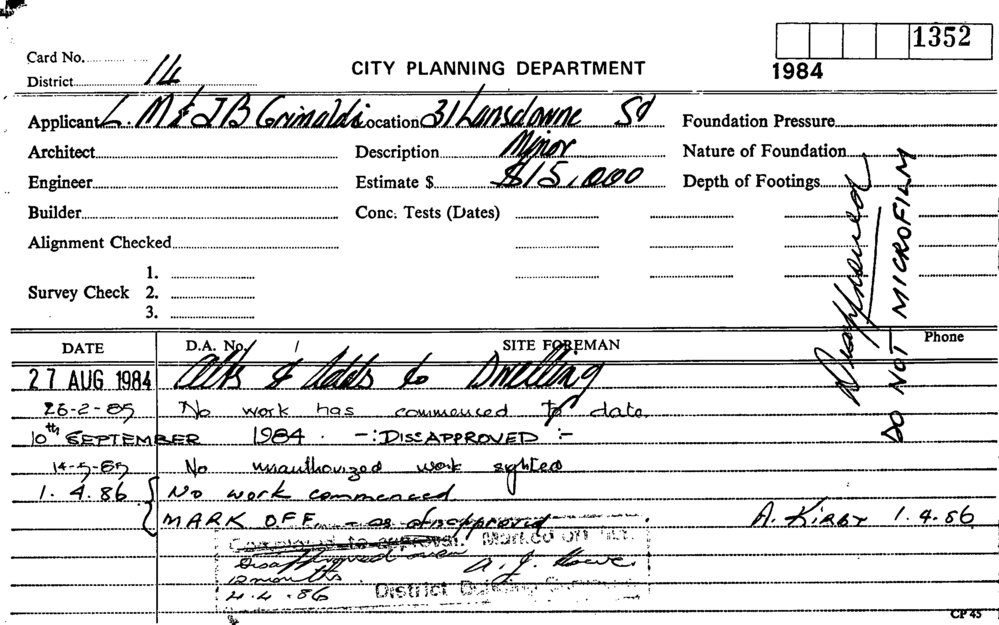 1352
Card No.
1984
CITY PLANNING DEPARTMENT
District 14
Applicant L. M & J B Grimaldi Location 31 Lansdowne St Foundation Pressure
Architect Description Minor Nature of Foundation
Engineer Estimate $ $15,000 Depth of Footings
Builder Conc. Tests (Dates)
Alignment Checked
1.
Survey Check 2.
3.
Disapproved
DO NOT MICROFILM
DATE D.A. No. SITE FOREMAN Phone
27 AUG 1984 Alts & Adds to Dwelling
26-2-85 No work has commenced to date.
10th SEPTEMBER 1984. -:DISSAPPROVED:-
14-5-85 No unauthorized work sighted
1.4.86 No work commenced
MARK OFF - as disapproved. A. KIRBY 1.4.86
to approval. Marked off
Disapproved over
12 months
A. J.
4.4.86 District
CP 45